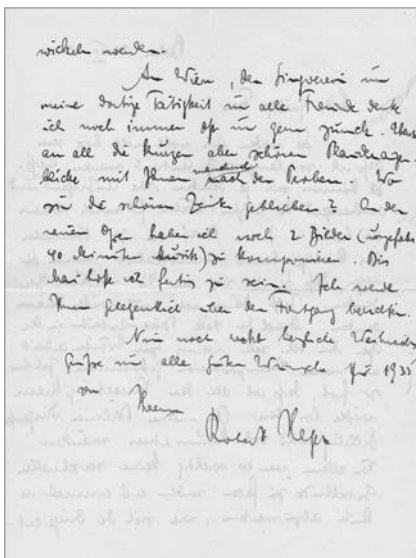 wickeln werden.
An Wien, den Singverein und
meine dortige Tätigkeit und alle Freunde denke
ich noch immer oft und gern zurück.
an all die kurzen aber schönen Plauderaugen-
blicke mit Ihnen nach den Proben. Wo
sind die schönen Zeiten geblieben? An der
neuen Oper habe ich noch 2 Bilder (ungefähr
40 Minuten Musik) zu komponieren. Bis
Mai hoffe ich fertig zu sein. Ich werde
Ihnen gelegentlich über den Fortgang berichten.
Nun noch recht herzliche Weihnachts-
grüße und alle guten Wünsche für 1935
von Ihrem
Robert Heger